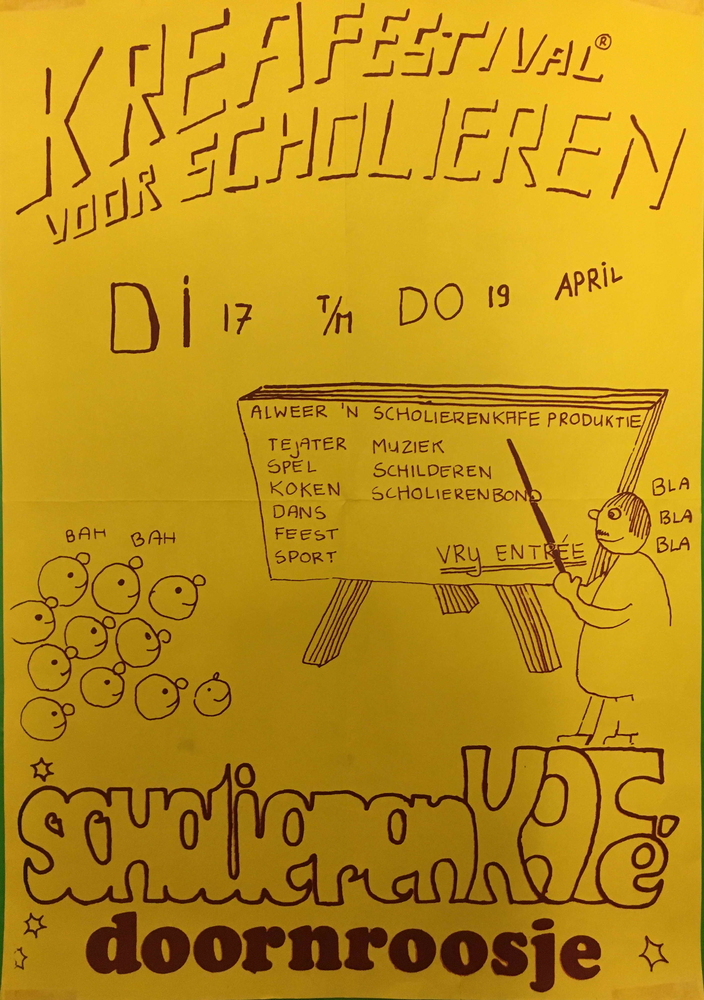 KREAFESTIVAL®
VOOR SCHOLIEREN
Di 17 T/M DO 19 APRiL
ALWEER 'N SCHOLIERENKAFE PRODUKTIE
TEJATER MUZIEK
SPEL SCHILDEREN
KOKEN SCHOLIERENBOND
DANS
FEEST
SPORT
VRIJ ENTRÉE
BLA
BLA
BLA
BAH BAH
scholierenKAFé
doornroosje